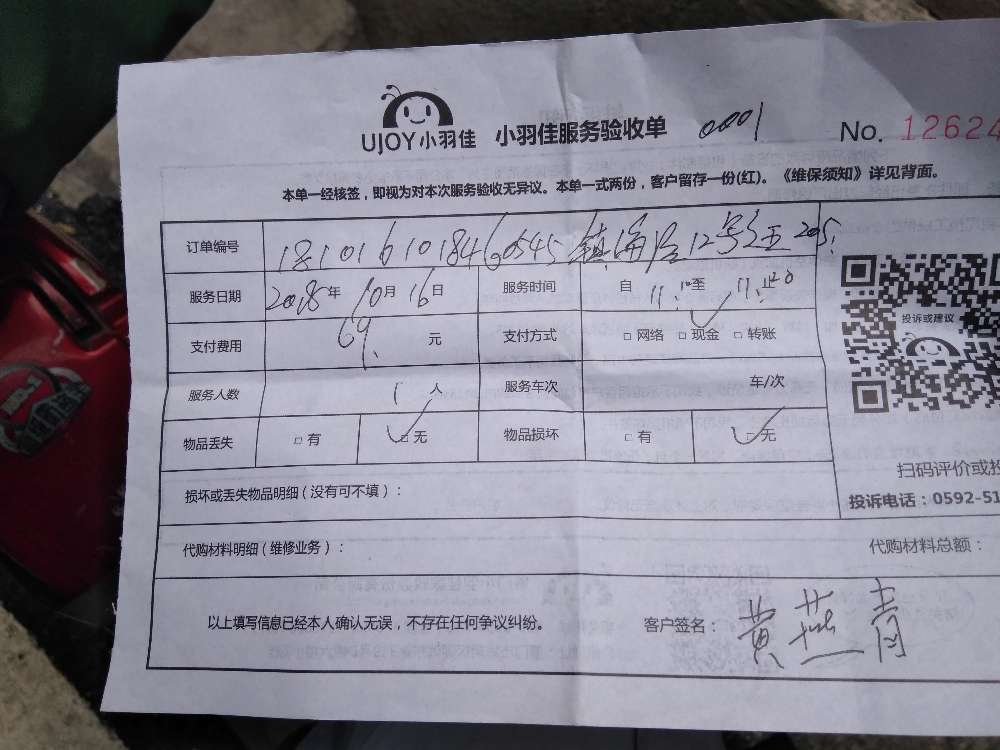 UJOY小羽佳 小羽佳服务验收单 0001 No. 12624
本单一经核签，即视为对本次服务验收无异议。本单一式两份，客户留存一份(红)。《维保须知》详见背面。
订单编号 18101610184660545 镇海路12号之五205
服务日期 2018年10月16日 服务时间 自11:10至11:20
支付费用 69. 元 支付方式 □网络 □现金 □转账
投诉或建议
服务人数 1人 服务车次 车/次
物品丢失 □有 □无 物品损坏 □有 □无
扫码评价或投
损坏或丢失物品明细（没有可不填）：
投诉电话：0592-51
代购材料明细（维修业务）： 代购材料总额：
以上填写信息已经本人确认无误，不存在任何争议纠纷。 客户签名：黄燕青